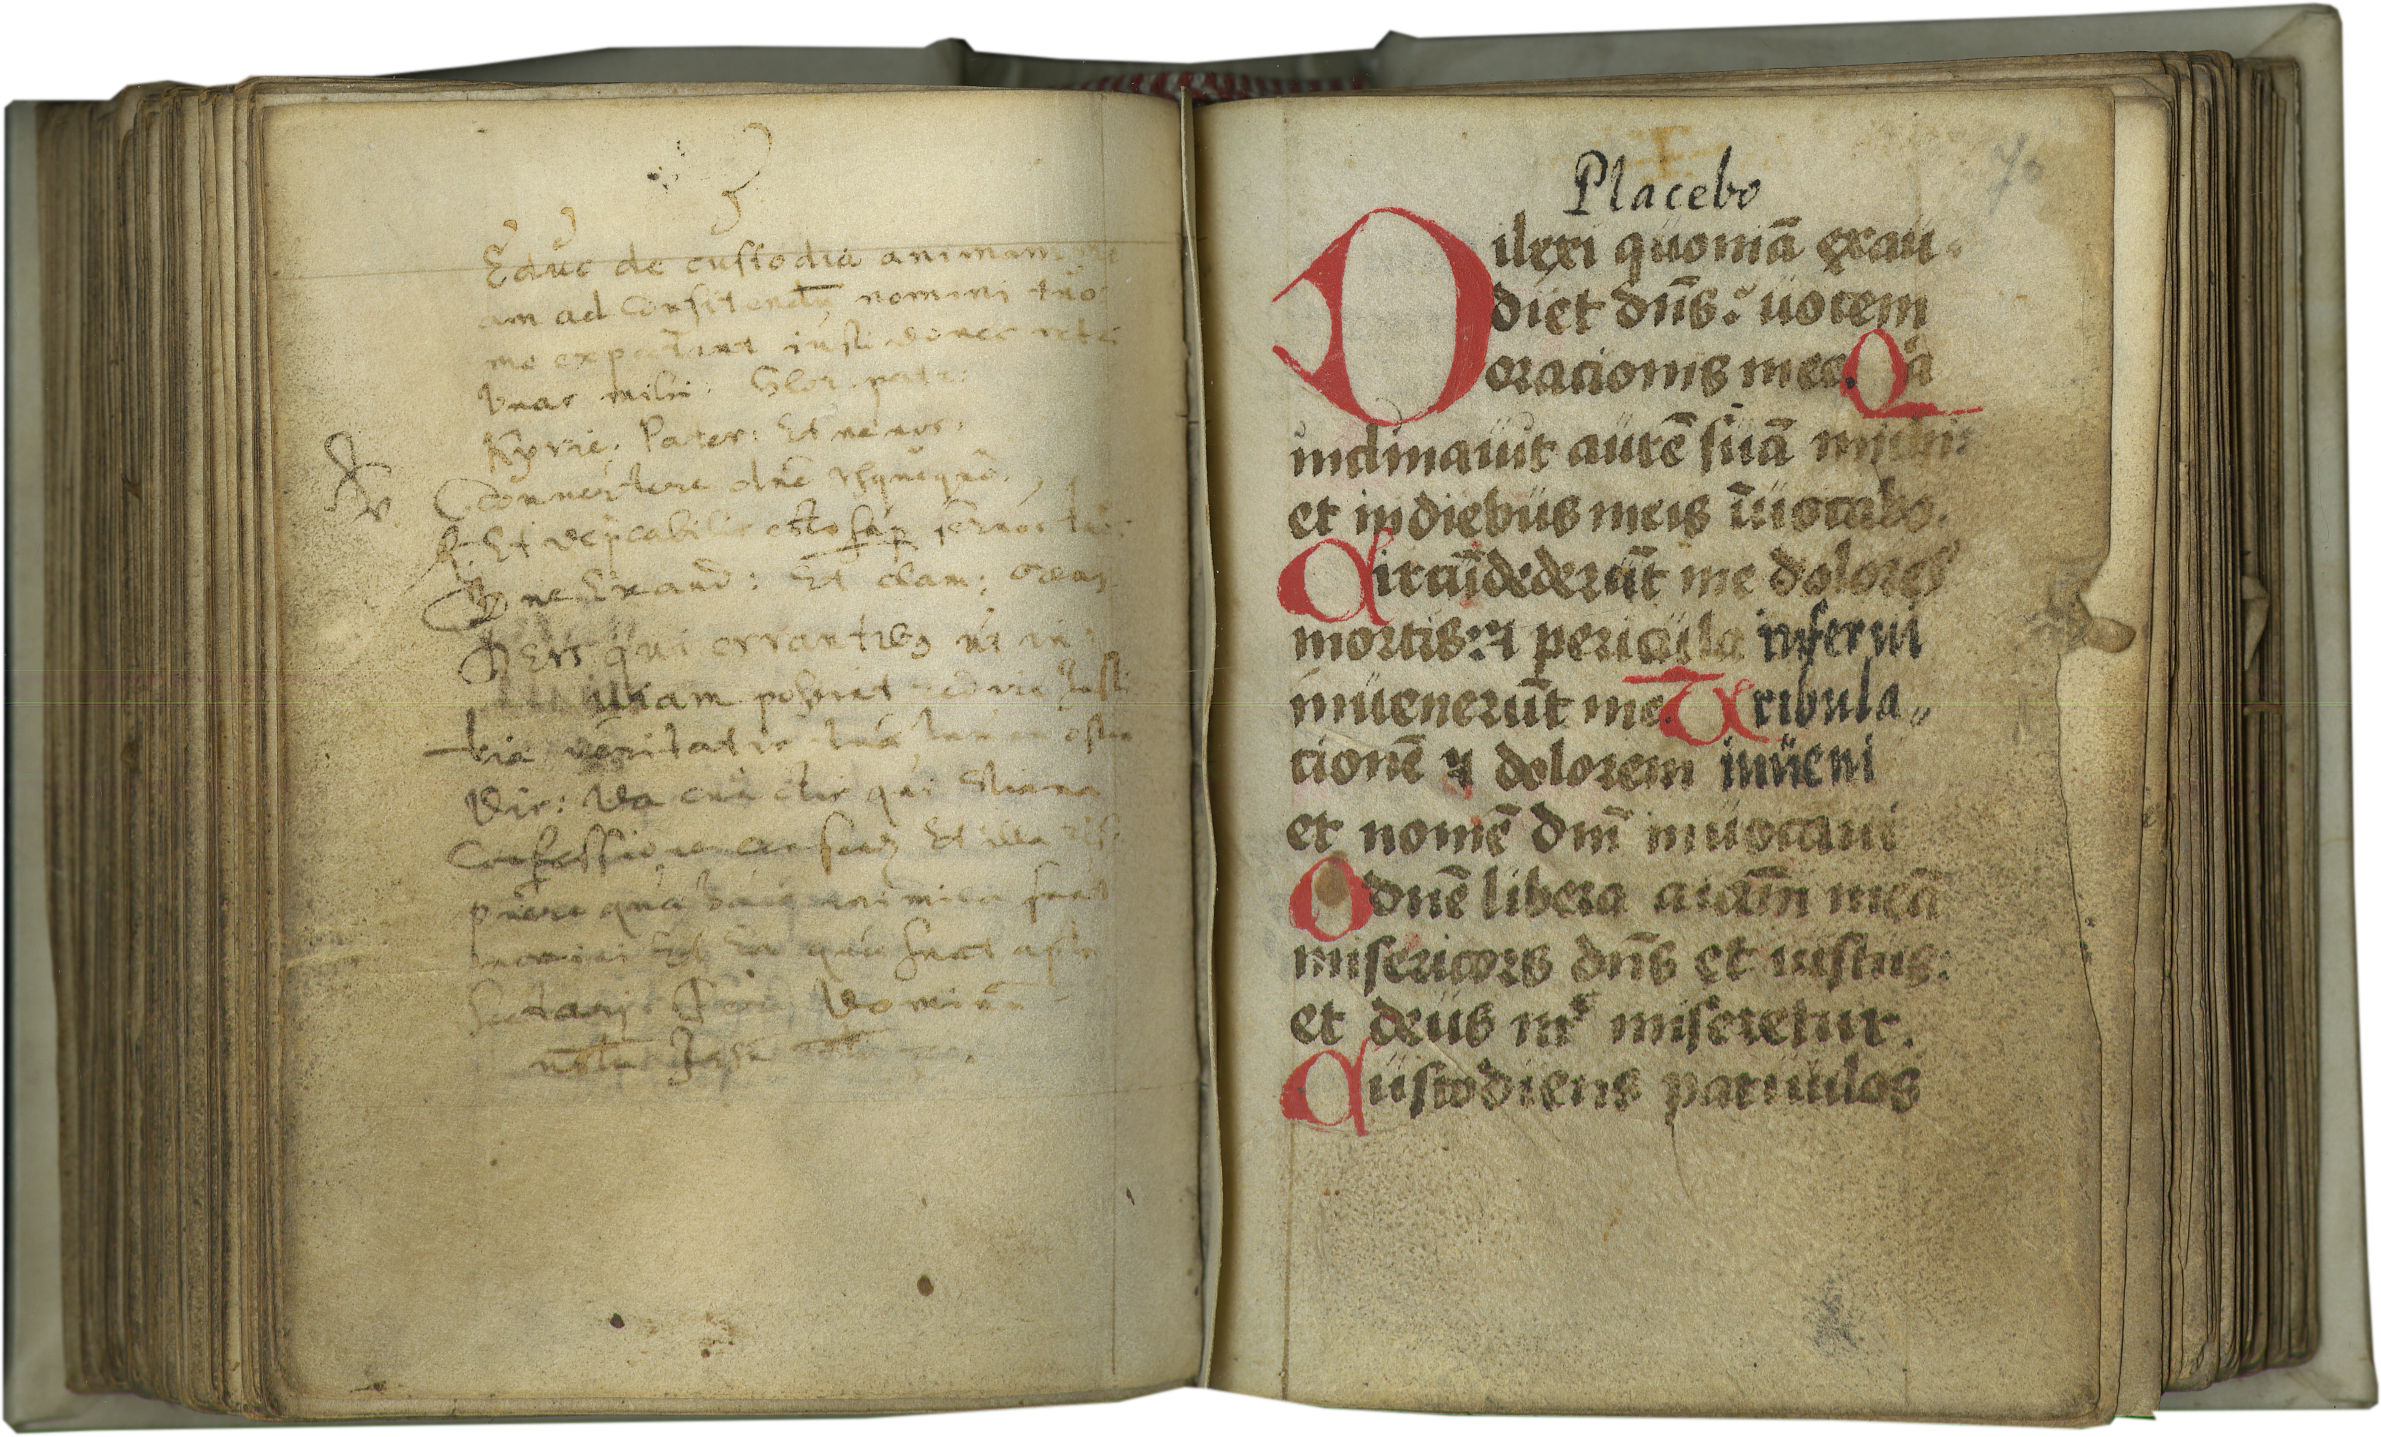 Educ de custodia animam me
am ad confitendũ nomini tuo
me expectant iusti donec retri
buas mihi. Glor. patr:
Kyrie. Pater: Et ne nos.
Conuertere dñe vsquequo.
R. Et dep̃cabilis esto sup seruos tuos
Dñe Exaud: Et clam: oremus
Deus qui errantibus ut in
uiam possint redire iusti
tiæ veritatis tuæ lumen osten
dis: da cunctis qui Xiana
Confessione censent Et illa res
puere quæ huic inimica sunt
nomini Et Ea quæ sunt apta
Sectari Per Dominũ
nostrũ Jesũ
70
Placebo
Dilexi quoniã exau-
diet dñs: uocem
oracionis mee. Qã
inclinauit aurẽ suã michi:
et in diebus meis ĩuocabo.
Circũdederũt me dolores
mortis: ⁊ pericula inferni
inuenerũt me. Tribula„
cionẽ ⁊ dolorem inueni
et nomẽ dñi inuocaui
O dñe libera aĩam meã
misericors dñs et iustus:
et deus nr̃ miseretur.
Custodiens paruulos